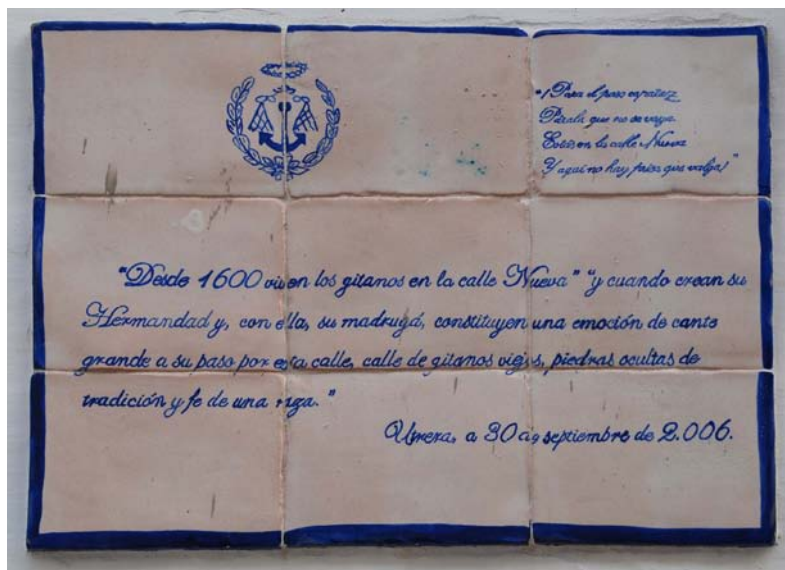 "¡Para el paso capataz
Párala que no se vaya
Estás en la calle Nueva
Y aquí no hay prisa que valga!"
"Desde 1600 viven los gitanos en la calle Nueva" "y cuando crean su
Hermandad y, con ella, su madrugá, constituyen una emoción de cante
grande a su paso por esta calle, calle de gitanos viejos, piedras ocultas de
tradición y fe de una raza."
Utrera, a 30 de septiembre de 2.006.